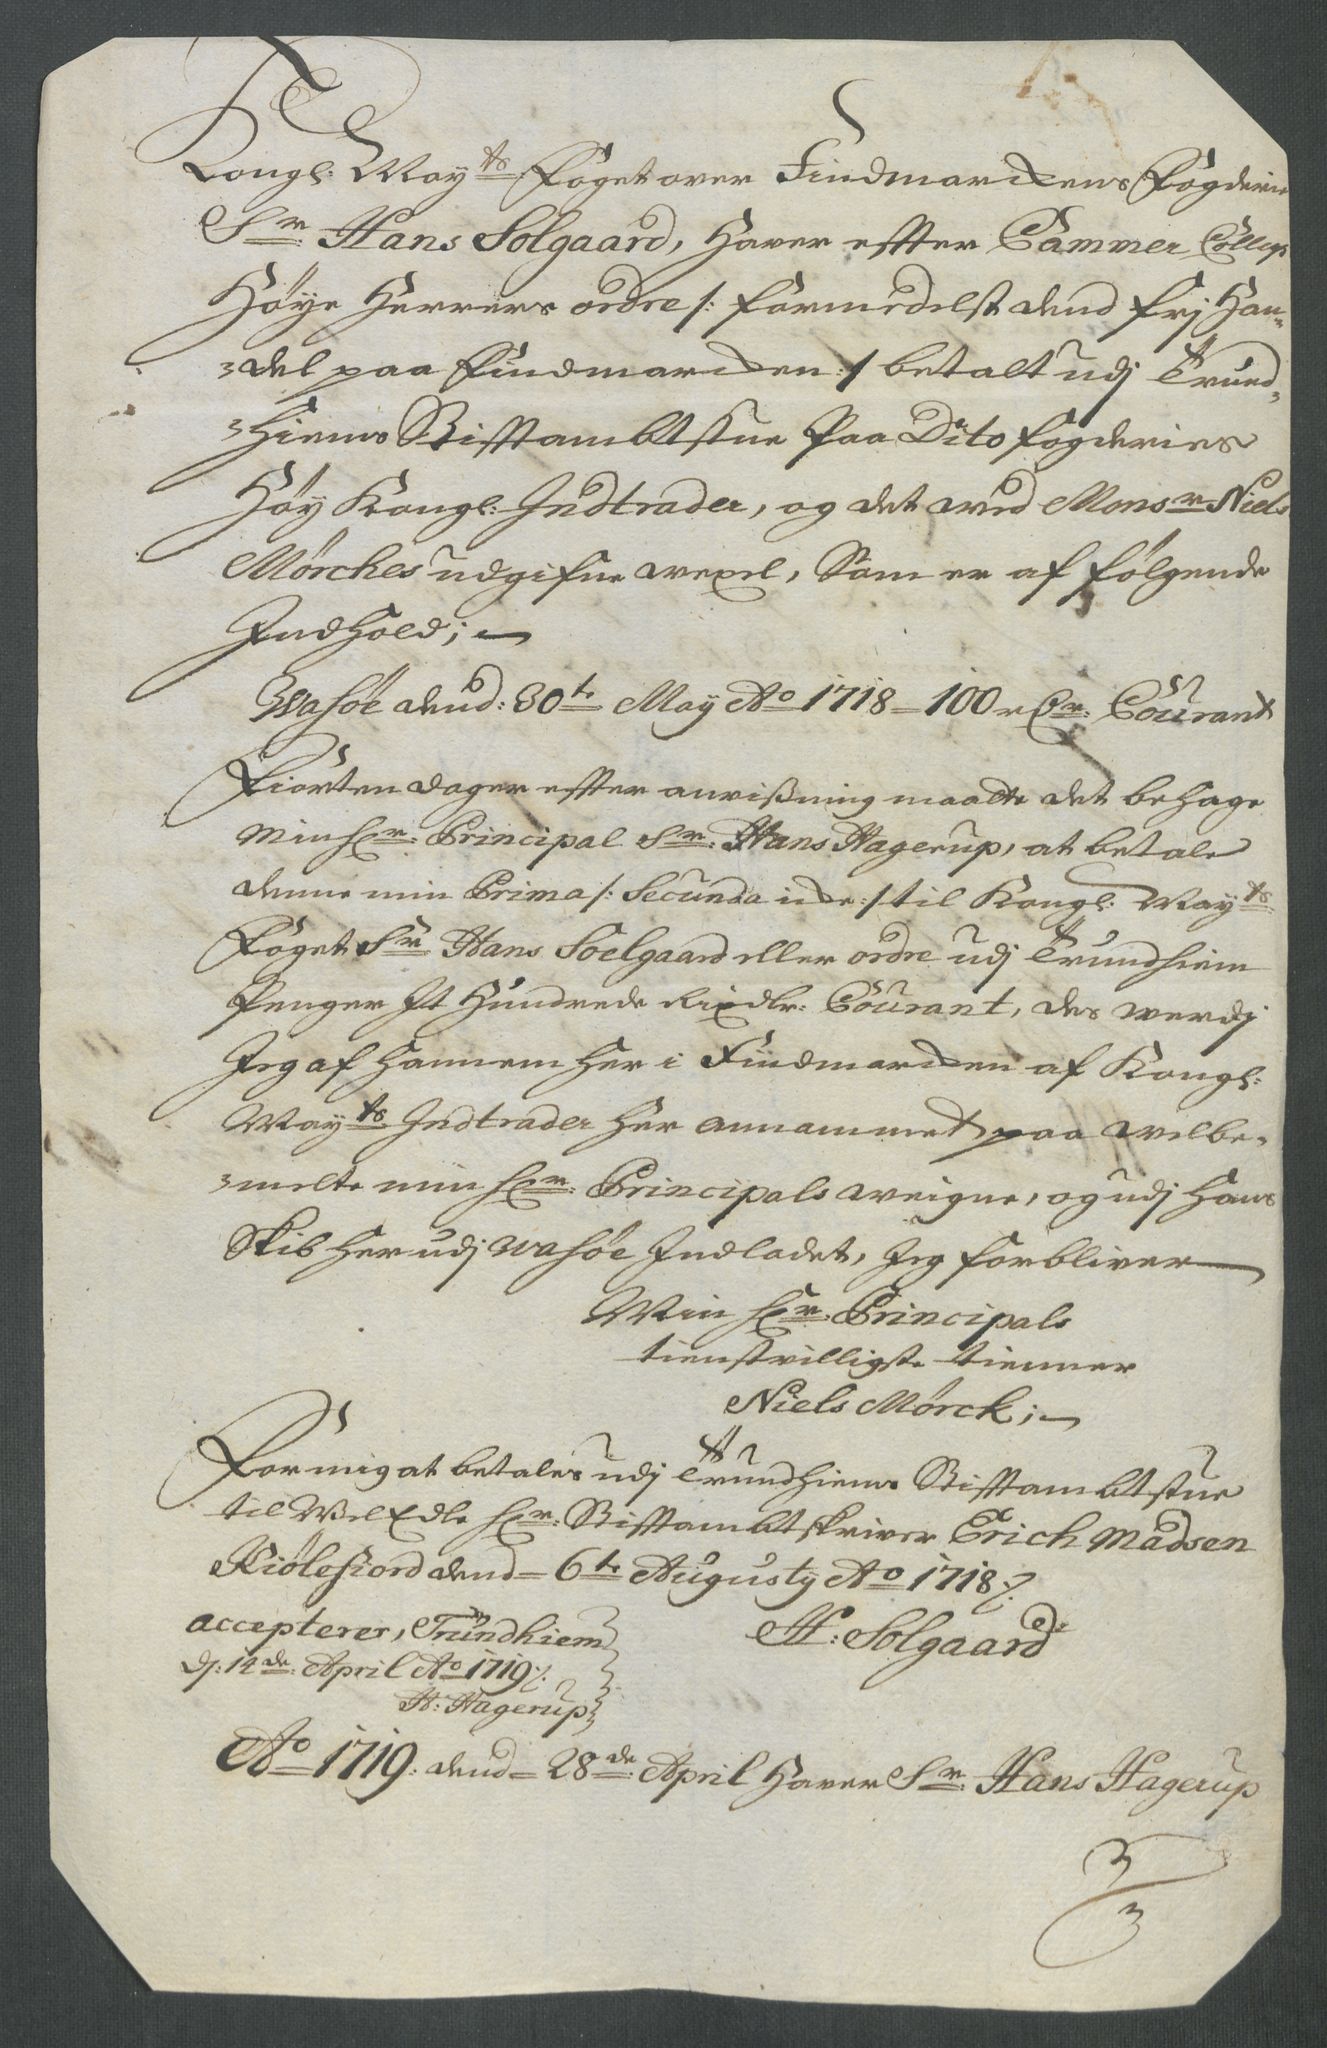 Kongl: May^ts Foget over Findmarckens Fogderie
S^r Hans Solgaard, Haver effter Cammer Collegi
Høye Herrers ordre /: formedelst dend frj Han-
del paa Findmarcken :/ betalt udj Trund-
hiems Stifftambtstue Paa Dito fogderies
Høy Kongl: Indtrader, og det ved Mons^r Niels
Mørches udgifne wexel, Som er af følgende
Indhold;
Wasöe dend: 30^t May A^o 1718 – 100 r C^r: Courant
Fiorten dager effter anvißning maatte det behage
min H^r: Principal S^r: Hans Hagerup, at betale
denne min Prima /: Secunda icke :/ til Kongl: May^ts
Foget S^r Hans Soelgaard eller ordre udj Trundhiem
Penger Et Hundrede Rixdlr: Courant, des werdj
Jeg af hannem her i Findmarcken af Kongl:
May^ts Indtrader her annammet paa welbe-
melte min H^r: Principals weigne, og udj Hans
Skib her udj Wasöe Indladet, Jeg forbliver
Min H^r: Principals
tienstvilligste tienner
Niels Mørck;
For mig at betales udj Trundhiems Stifftambtstue
til WelEdle H^r: Stifftambtskriver Erich Madsen
Kiölefiord dend – 6^t Augusty A^o 1718 ./.
accepterer, Trundhiem
dj: 14^de: April A^o 1719 ./.
H: Hagerup
H: Solgaard
A^o 1719: dend – 28^de: April Haver S^r: Hans Hagerup